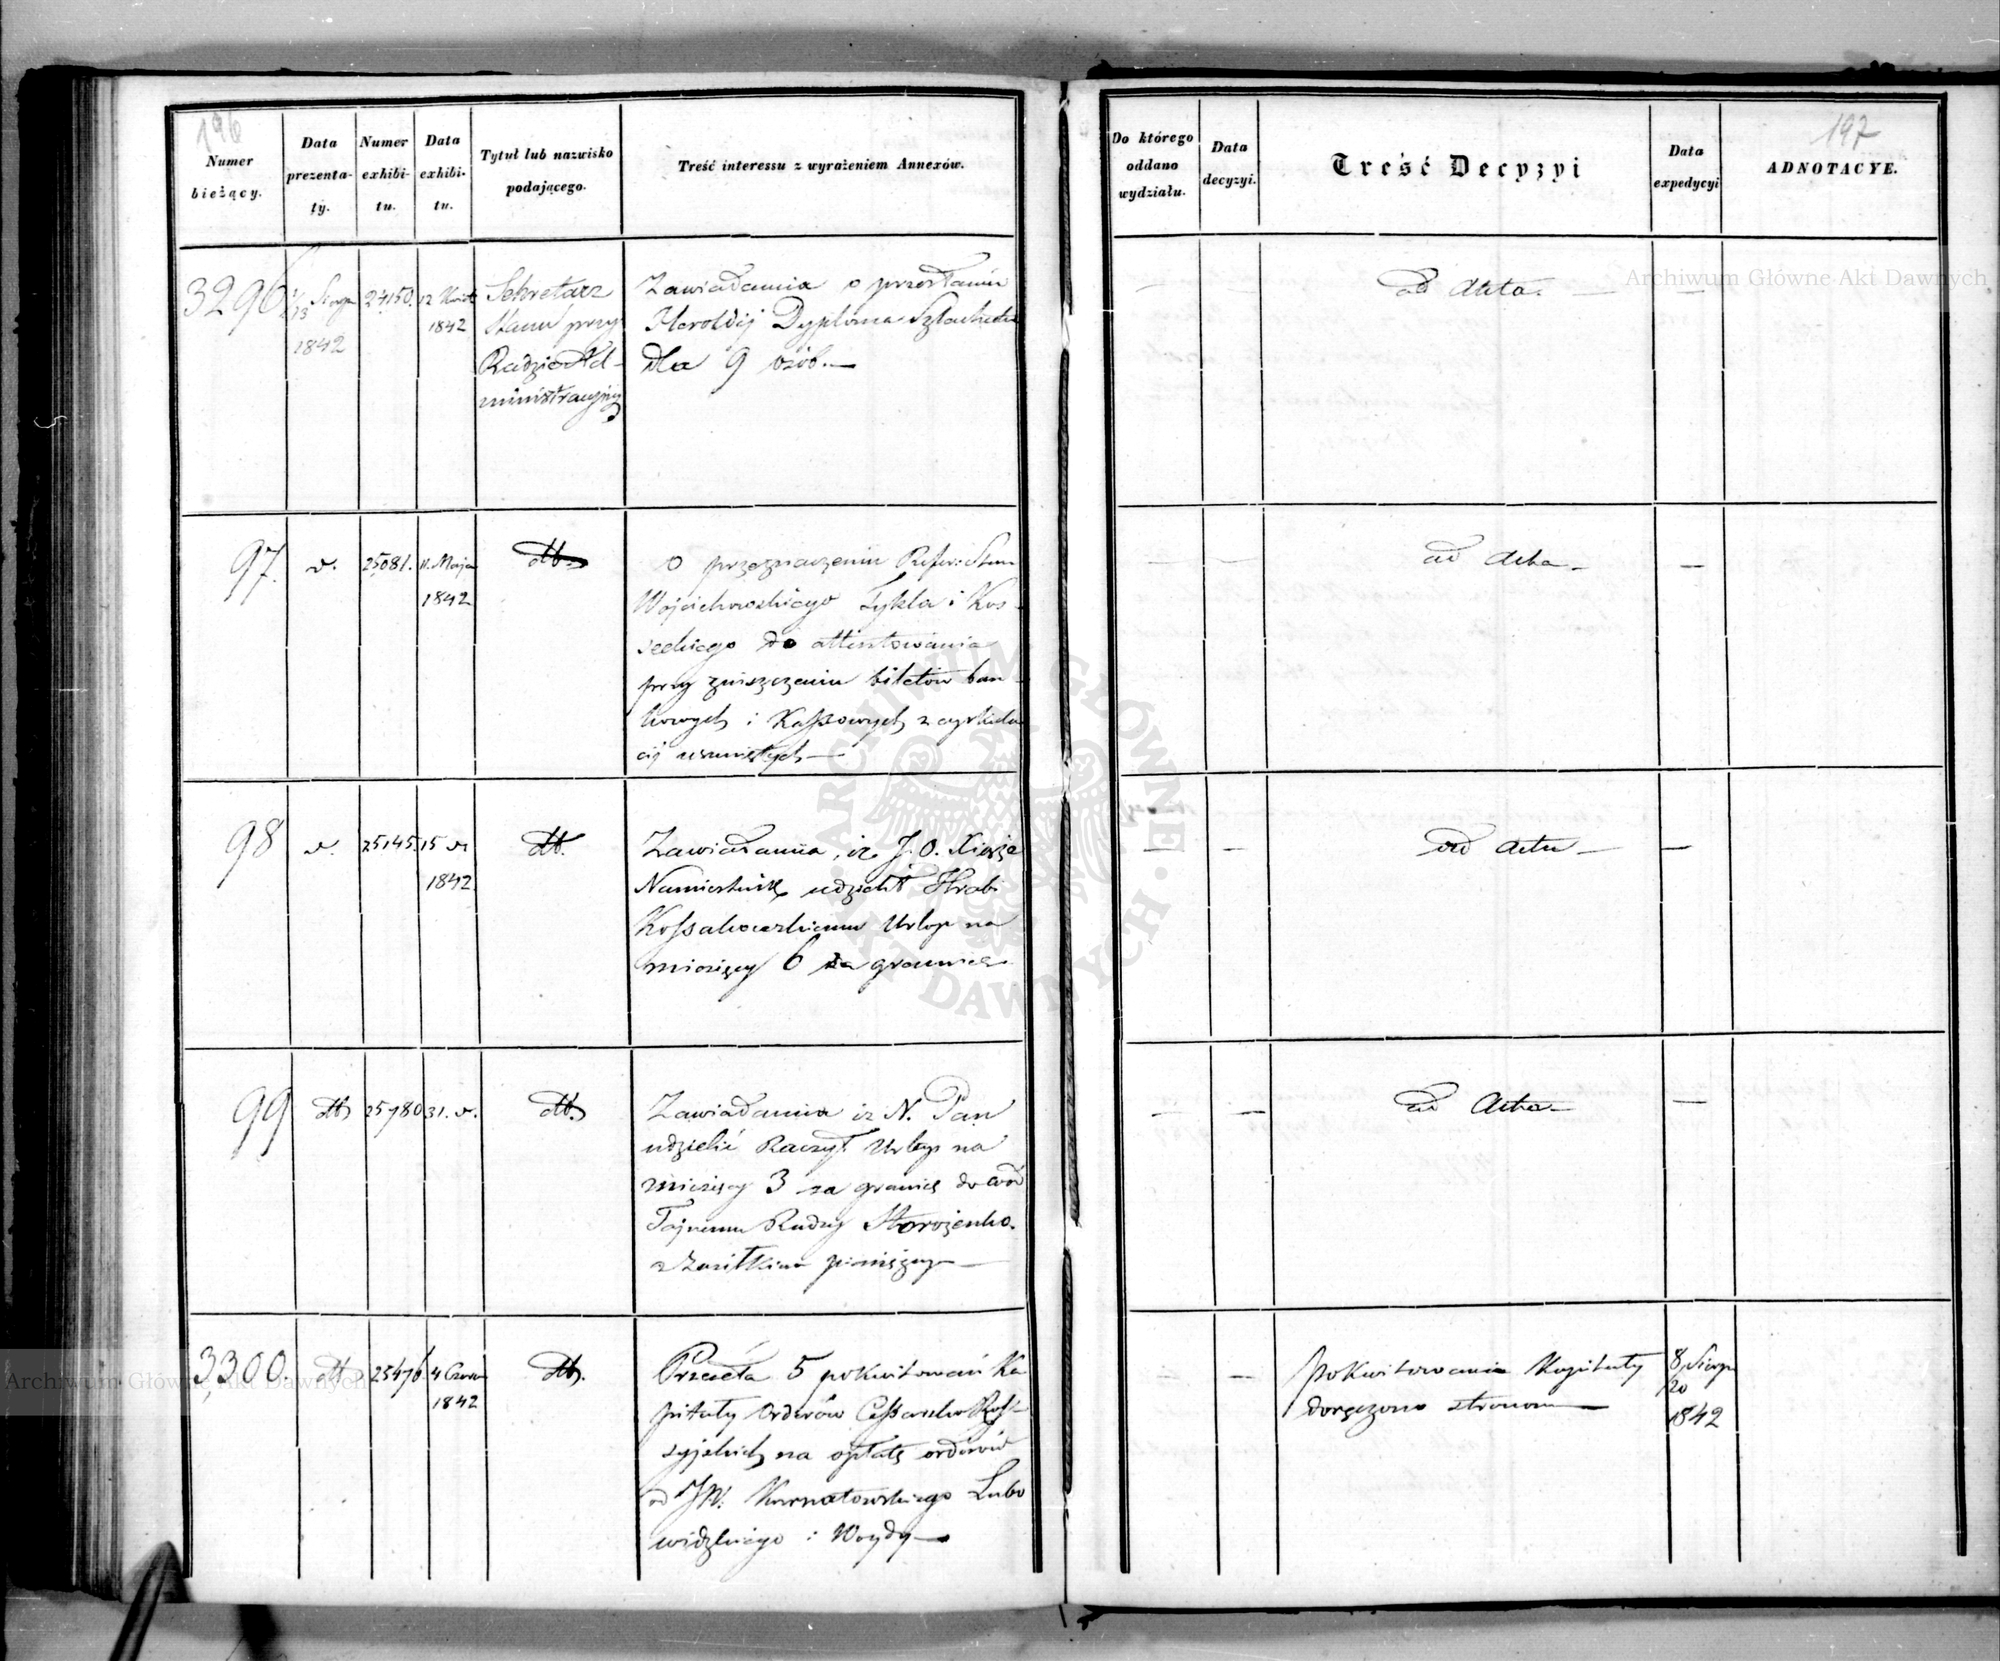 196
Numer bieżący.
Data prezenta-ty.
Numer exhibi-tu.
Data exhibi-tu.
Tytuł lub nazwisko podającego.
Treść interessu z wyrażeniem Annexów.
3296
1/13 Sierp 1842
24150.
12 Kwiet 1842
Sekretarz
Stanu przy
Radzie Ad-
ministracyjnej
Zawiadamia o przesłaniu
Heroldij Dyploma Szlachectwa
dla 9 osób.—
97.
v.
25081.
11. Maja
1842
dto
O przeznaczeniu Refer: Stanu
Wojciechowskiego Tykla i Kos-
seckiego do attestowania
przy zniszczeniu biletów ban-
kowych i Kassowych z cyrkula
cij usuniętych—
98
v.
25145.
15 v.
1842
dto.
Zawiadamia, iż J. O. Xiąże
Namiestnik udzielił Hrabi
Kossakowskiemu Urlop na
miesięcy 6 za granicę
99
dto
25780
31. v.
dto
Zawiadamia iż N. Pan
udzielić Raczył Urlop na
miesięcy 3 za granicę do wód
Tajnemu Radzcy Storożenko.
z Zasiłkiem pieniężnym—
3300.
dto
25476
4 Czerw
1842
dto.
Przeseła 5 pokwitowań Ka
pituły Orderów Cessarsko Ross-
syjskich na opłatę orderów
od JW. Karnatowskiego Lubo
widzkiego i Woydy—
197
Do którego oddano wydziału.
Data decyzyi.
Treść Decyzyi
Data expedycyi
ADNOTACYE.
ad Acta.
ad Acta—
ad Acta—
ad Acta—
pokwitowania Kapituły
doręczono stronom—
8/20 Sierp
1842
Archiwum Główne Akt Dawnych
Archiwum Główne Akt Dawnych
ARCHIWUM GŁÓWNE AKT DAWNYCH